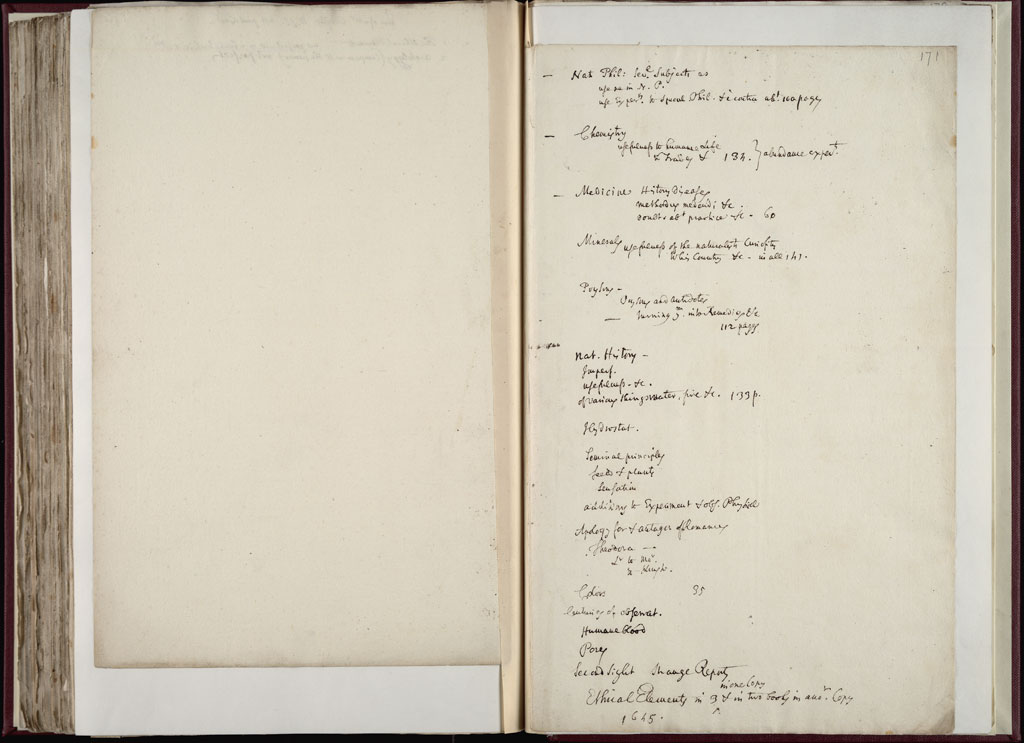 171
— Nat Phil: sevl. Subjects as
usefulness in N. P.
use Experts. to Specul Phil. & è contra abt. 100 pages
— Chemistry
usefulness to humane Life
& Trades & 134. } abundance expert.
— Medicines History Diseases
methodus medendi &c.
doubts abt practice &c - 60
Minerals usefulness of the naturalists Curiosity
this Country &c - in all 141.
Poysons -
Poysons and antidotes
— turning ym. into Remedies &c
112 pages
Nat. History -
Imperf.
usefulness - &c.
of various things water, fire &c. 133 p.
Hydrostat.
Seminal principles
seeds & plants
sensation
additions to Experiment & obs. Physicæ
Apology for & of Romances
Theodora —
Lr to Mrs.
Colors 35
of observat.
Humane blood
Pores
Second Sight strange Reports
in one Copy
Ethical Elements in 3 & in two books in anor. Copy
1645.